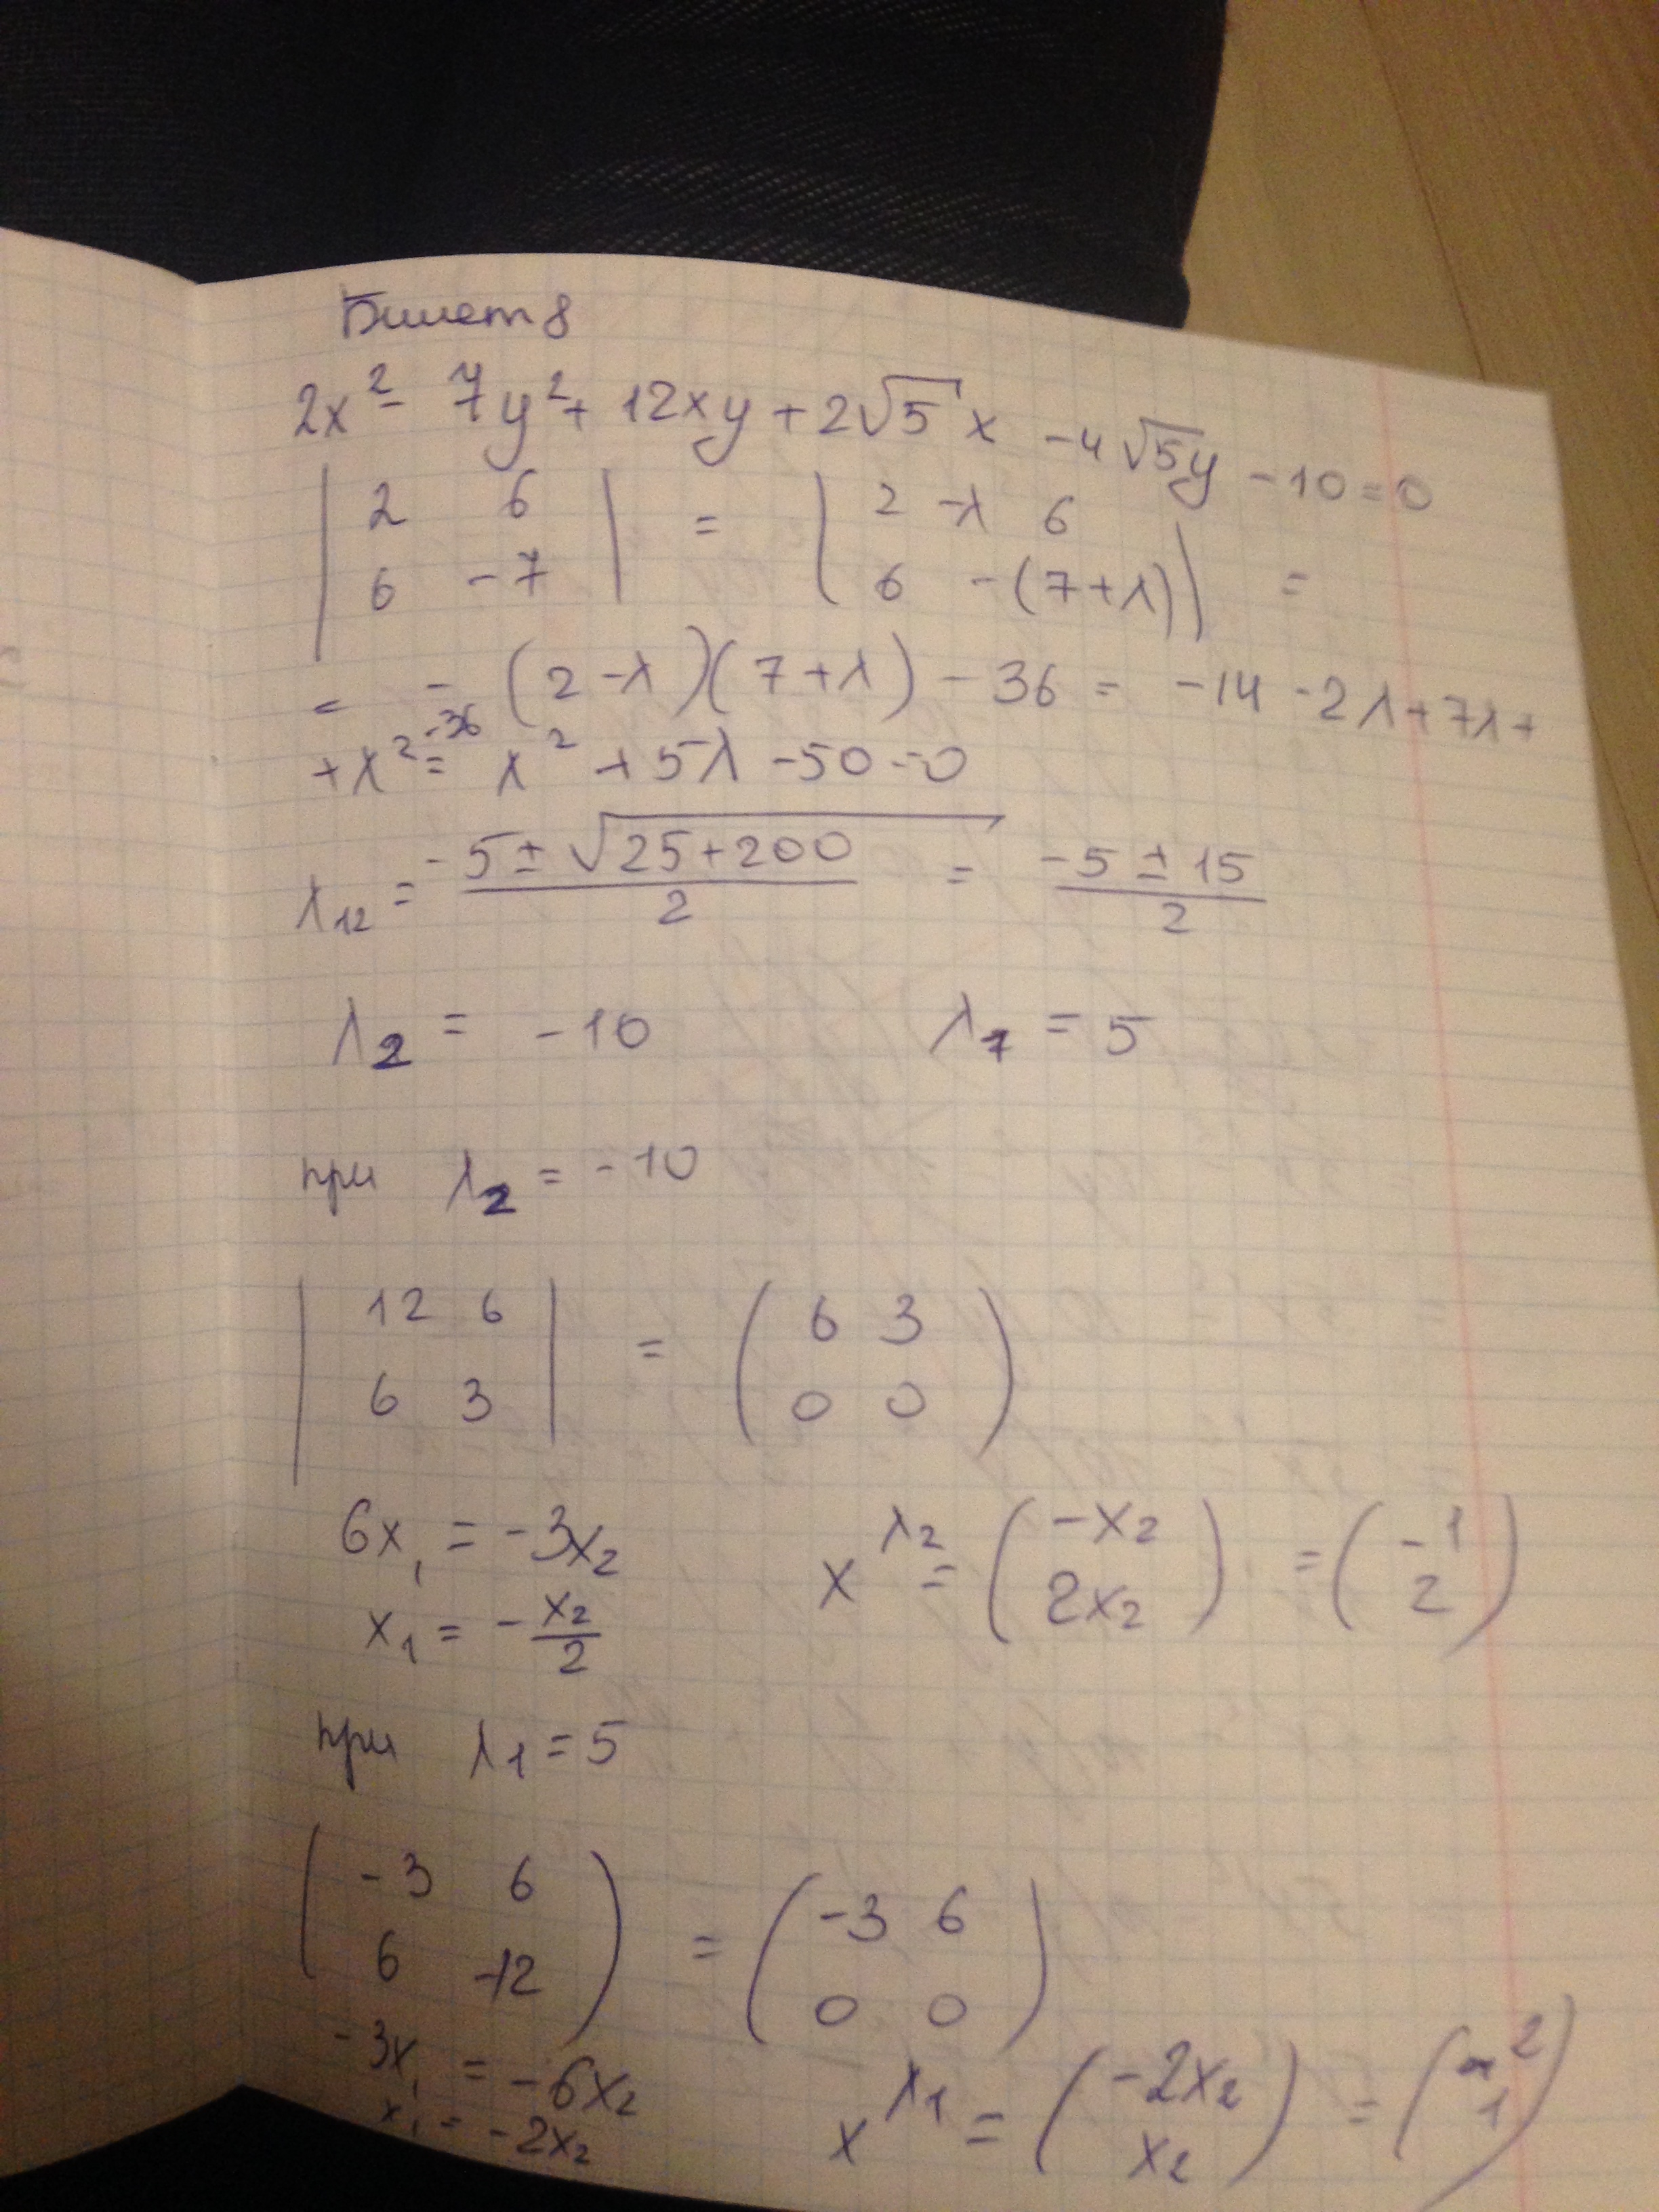 Билет 8
2x² - 7y² + 12xy + 2√5 x - 4√5y - 10 = 0
| 2 6 | = | 2 -λ 6 |
| 6 -7 | | 6 -(7+λ) | =
= - (2-λ)(7+λ) - 36 = -14 - 2λ + 7λ +
+λ² -36 = λ² + 5λ - 50 = 0
λ₁₂ = (-5 ± √(25+200))/2 = (-5 ± 15)/2
λ₂ = -10 λ₁ = 5
при λ₂ = -10
| 12 6 | = ( 6 3 )
| 6 3 | ( 0 0 )
6x₁ = -3x₂ x^λ₂ = ( -x₂ ) = ( -1 )
x₁ = -x₂/2 ( 2x₂ ) ( 2 )
при λ₁ = 5
( -3 6 ) = ( -3 6 )
( 6 -12 ) ( 0 0 )
-3x₁ = -6x₂ x^λ₁ = ( -2x₂ ) = ( 2 )
x₁ = -2x₂ ( x₂ ) ( 1 )